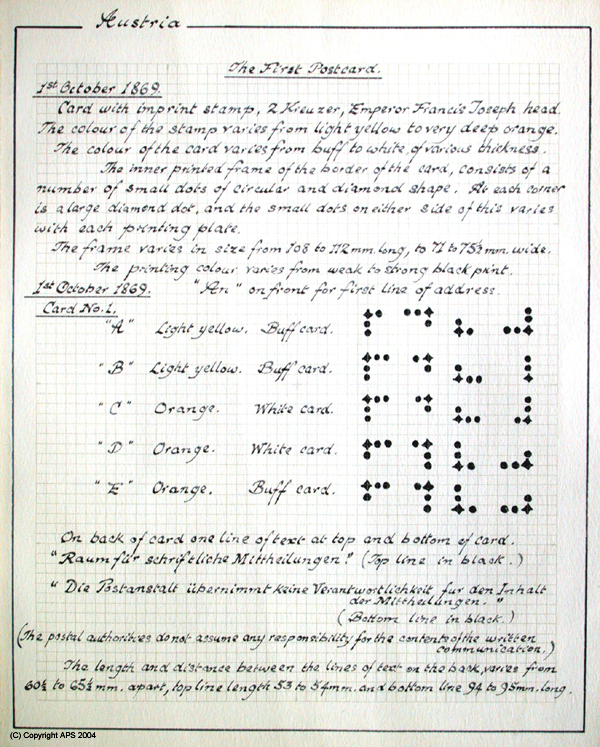 Austria
The First Postcard.
1st October 1869.
Card with imprint stamp, 2 Kreuzer, Emperor Francis Joseph head.
The colour of the stamp varies from light yellow to very deep orange.
The colour of the card varies from buff to white, of various thickness.
The inner printed frame of the border of the card, consists of a
number of small dots of circular and diamond shape. At each corner
is a large diamond dot, and the small dots on either side of this varies
with each printing plate.
The frame varies in size from 108 to 112 mm. long, to 71 to 75½ mm. wide.
The printing colour varies from weak to strong black print.
1st October 1869. "An" on front for first line of address.
Card No. 1.
"A" Light yellow. Buff card.
"B" Light yellow. Buff card.
"C" Orange. White card.
"D" Orange. White card.
"E" Orange. Buff card.
On back of card one line of text at top and bottom of card.
"Raum für schriftliche Mittheilungen." (Top line in black.)
"Die Postanstalt übernimmt keine Verantwortlichkeit fur den Inhalt
der Mittheilungen."
(Bottom line in black.)
(The postal authorities do not assume any responsibility for the contents of the written
communication.)
The length and distance between the lines of text on the back, varies from
60½ to 65½ mm. apart, top line length 53 to 54mm. and bottom line 94 to 95mm. long.
(C) Copyright APS 2004